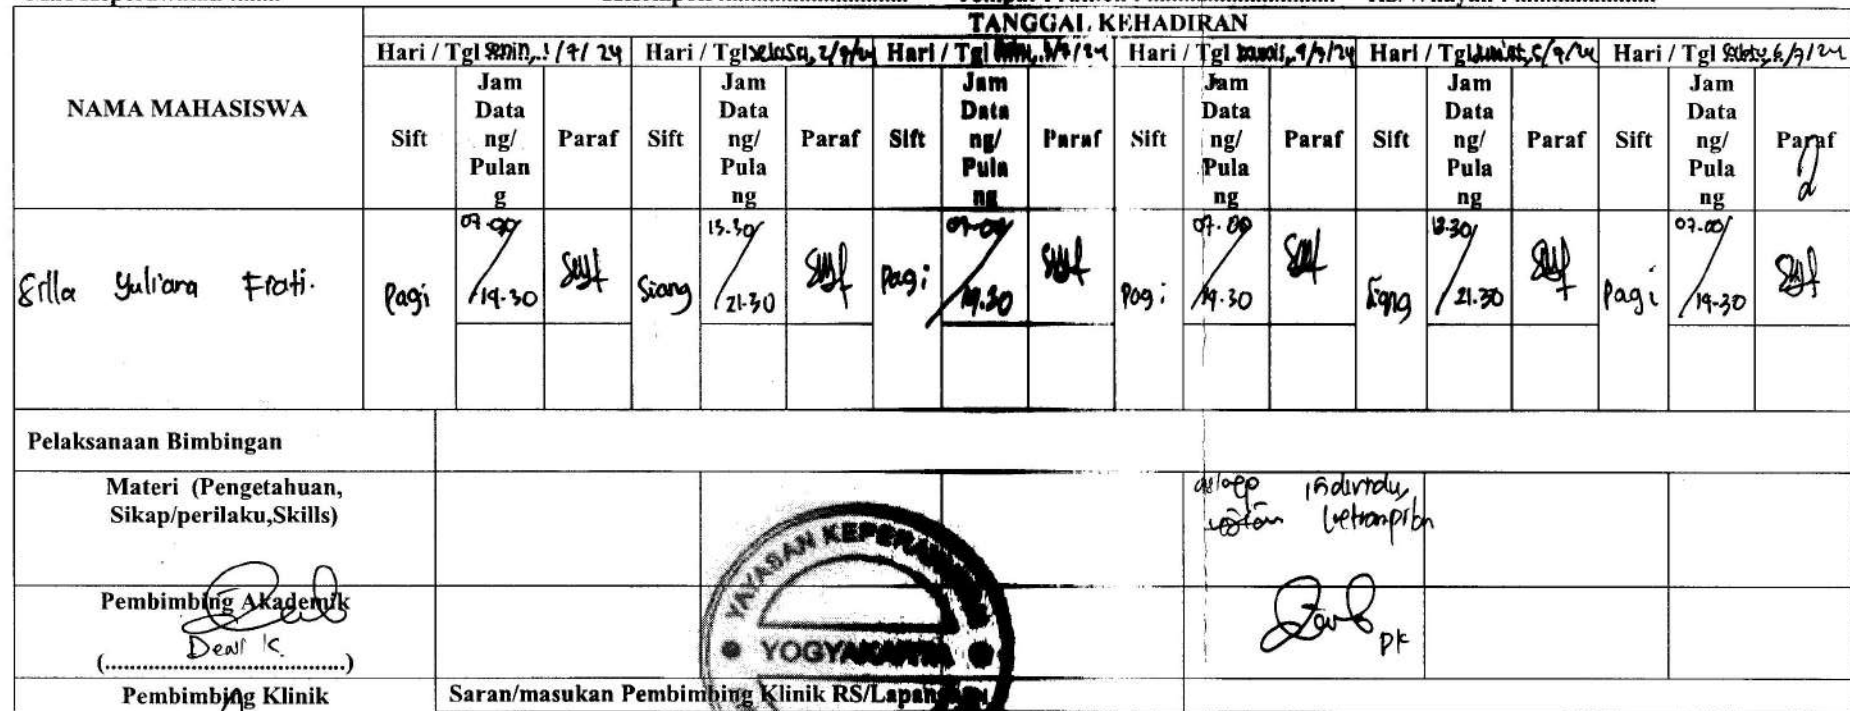 TANGGAL KEHADIRAN
NAMA MAHASISWA
Hari / Tgl Senin, 1/7/24 Hari / Tgl selasa, 2/7/24 Hari / Tgl Hari / Tgl kamis, 4/7/24 Hari / Tgl Jum'at, 5/7/24 Hari / Tgl Sabtu, 6/7/24
Sift Jam Data ng/ Pulan g Paraf Sift Jam Data ng/ Pula ng Paraf Sift Jam Data ng/ Pula ng Paraf Sift Jam Data ng/ Pula ng Paraf Sift Jam Data ng/ Pula ng Paraf Sift Jam Data ng/ Pula ng Paraf
Yuliana
Pagi 07.00/14.30 Siang 13.30/21.30 Pagi 07.00/14.30 Pagi 07.00/14.30 Siang 13.30/21.30 Pagi 07.00/14.30
Pelaksanaan Bimbingan
Materi (Pengetahuan,
Sikap/perilaku,Skills)
individu,
YAYASAN
YOGYAKARTA
Pembimbing Akademik
(......................................)
PK
Pembimbing Klinik
Saran/masukan Pembimbing Klinik RS/Lapangan